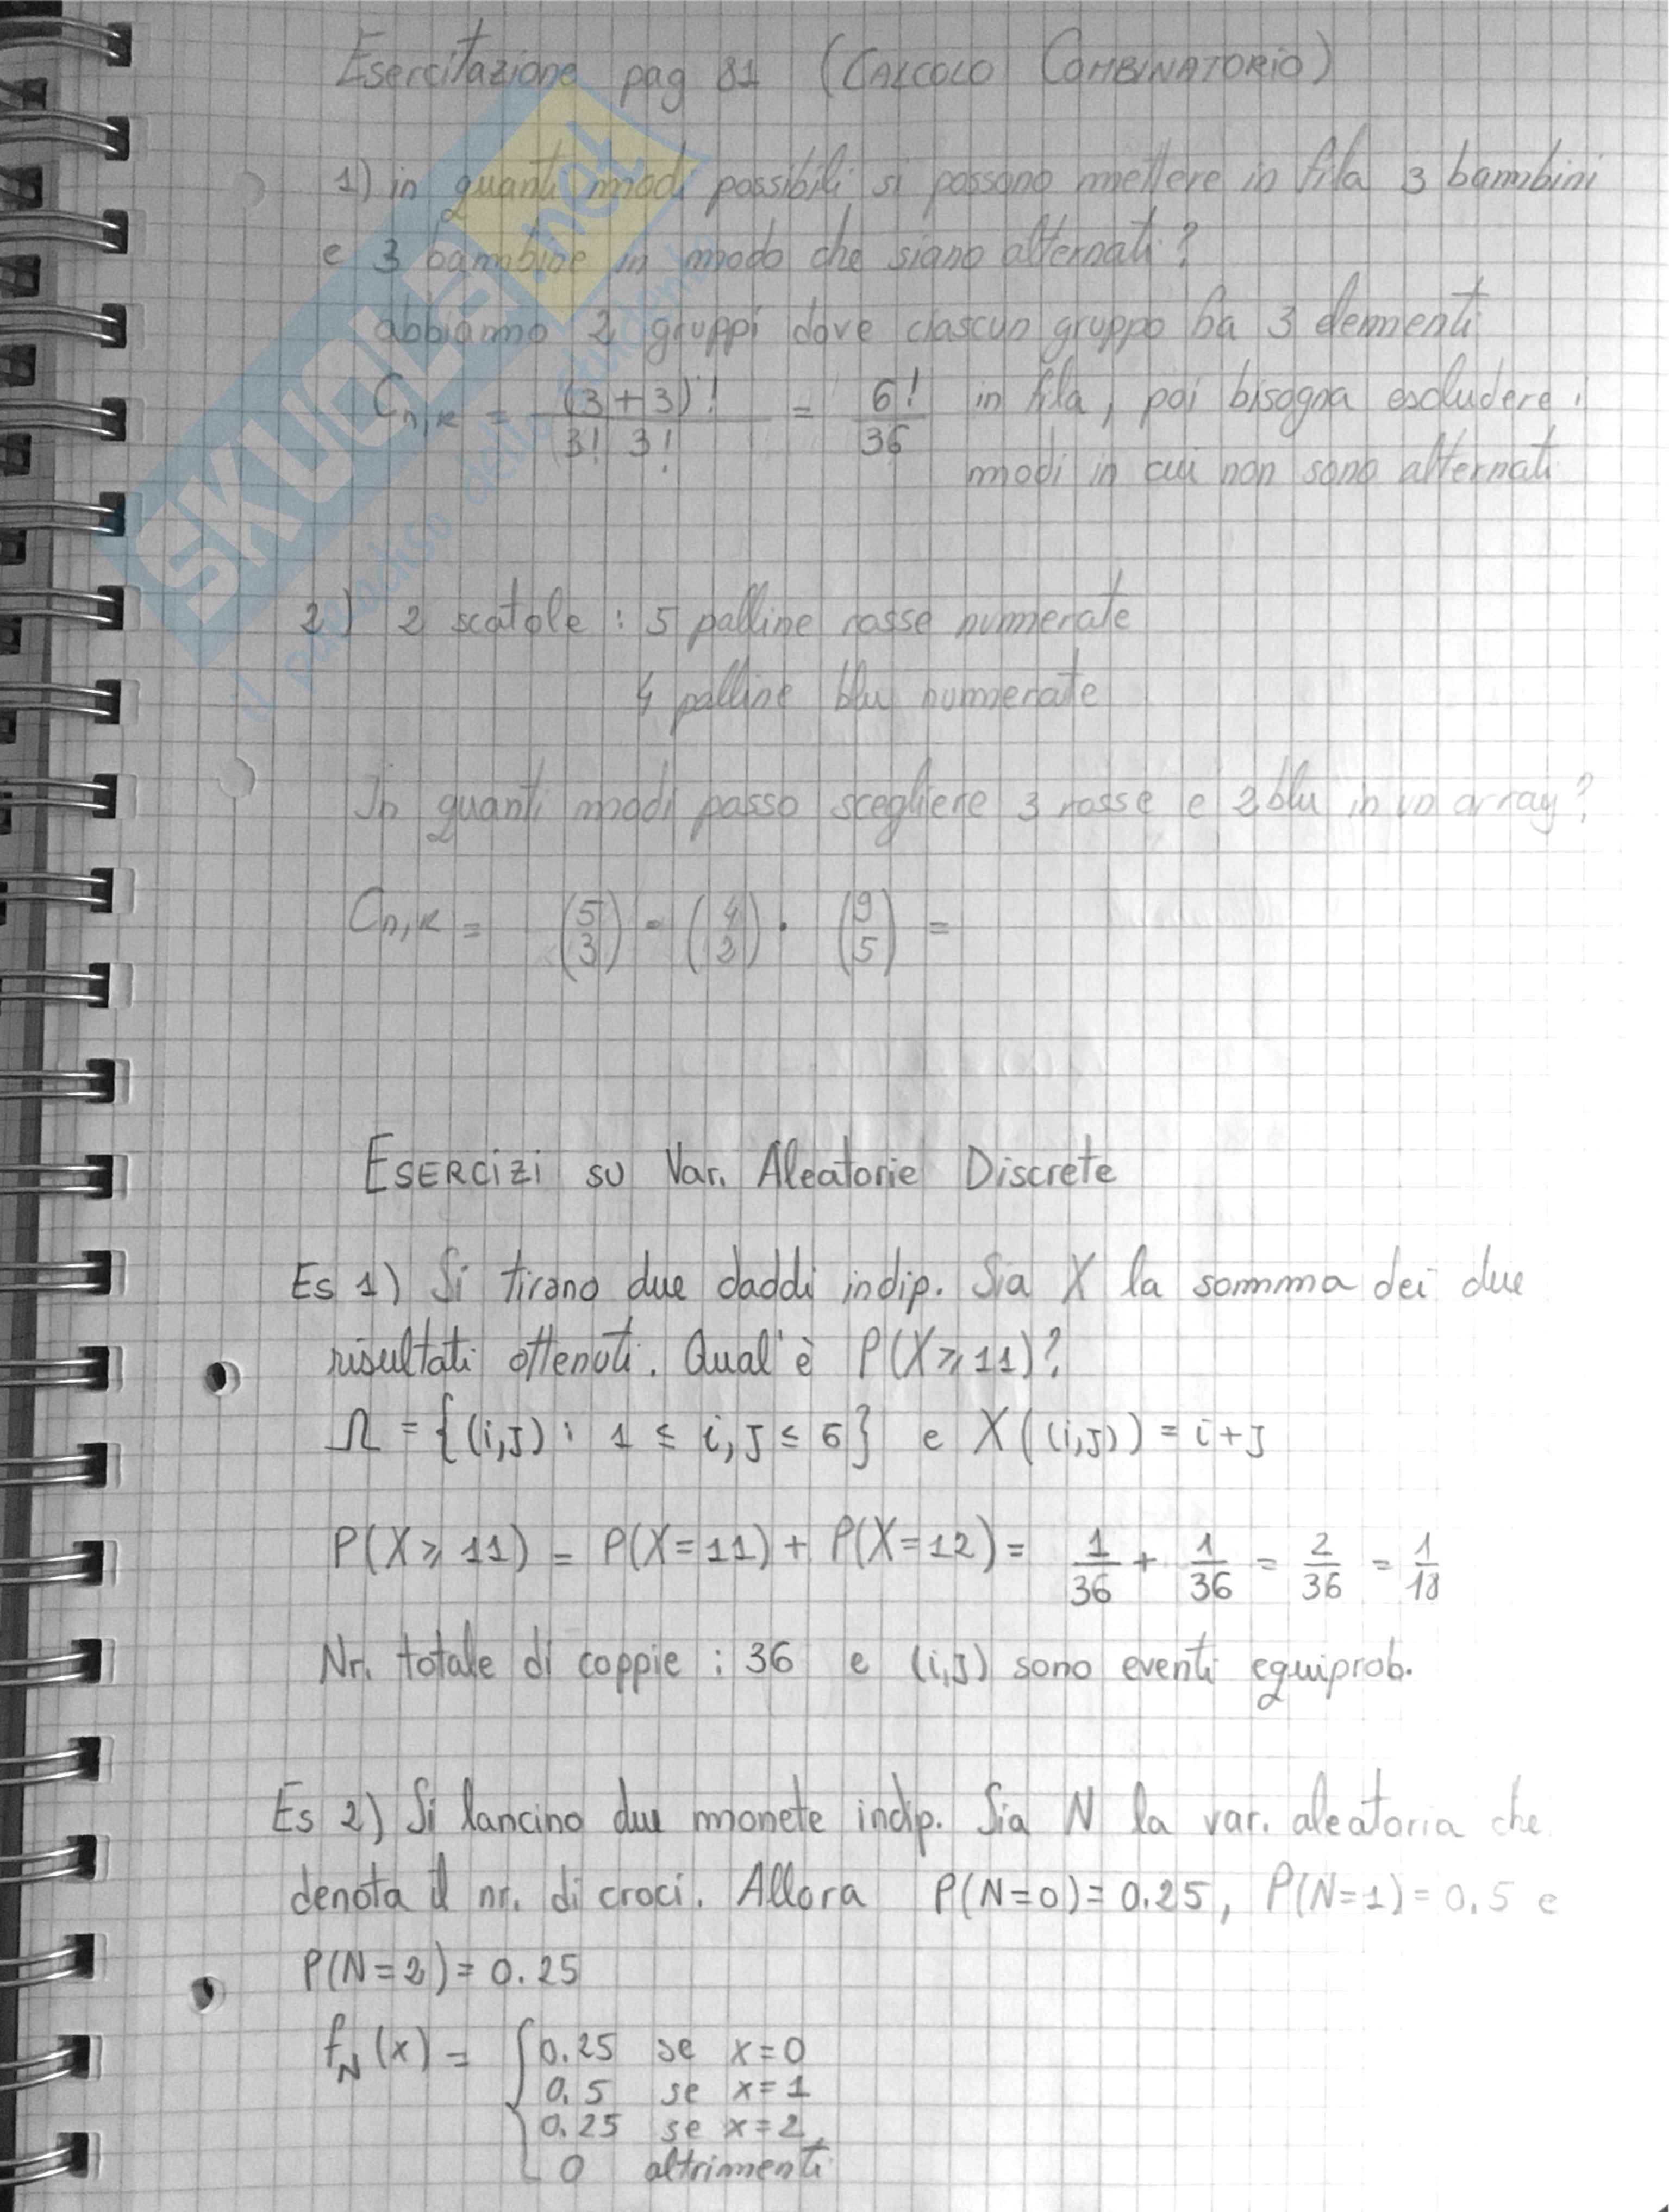 Esercitazione pag 81 (CALCOLO COMBINATORIO)
1) in quanti modi possibili si possono mettere in fila 3 bambini
e 3 bambine in modo che siano alternati?
abbiamo 2 gruppi dove ciascun gruppo ha 3 elementi
C_{n,k} = (3+3)! / 3! 3! = 6! / 36 in fila, poi bisogna escludere i
modi in cui non sono alternati
2) 2 scatole : 5 palline rosse numerate
4 palline blu numerate
In quanti modi posso scegliere 3 rosse e 2 blu in un array?
C_{n,k} = (5 3) · (4 2) · (9 5) =
ESERCIZI SU Var. Aleatorie Discrete
Es 1) Si tirano due daddi indip. Sia X la somma dei due
risultati ottenuti. Qual'è P(X≥11)?
Ω = {(i,J) : 1 ≤ i,J ≤ 6} e X((i,J)) = i+J
P(X≥11) = P(X=11) + P(X=12) = 1/36 + 1/36 = 2/36 = 1/18
Nr. totale di coppie : 36 e (i,J) sono eventi equiprob.
Es 2) Si lancino due monete indip. Sia N la var. aleatoria che
denota il nr. di croci. Allora P(N=0)=0.25, P(N=1)=0.5 e
P(N=2)=0.25
f_N(x) = { 0.25 se x=0
0.5 se x=1
0.25 se x=2
0 altrimenti
SKUOLA.net
il paradiso dello studente